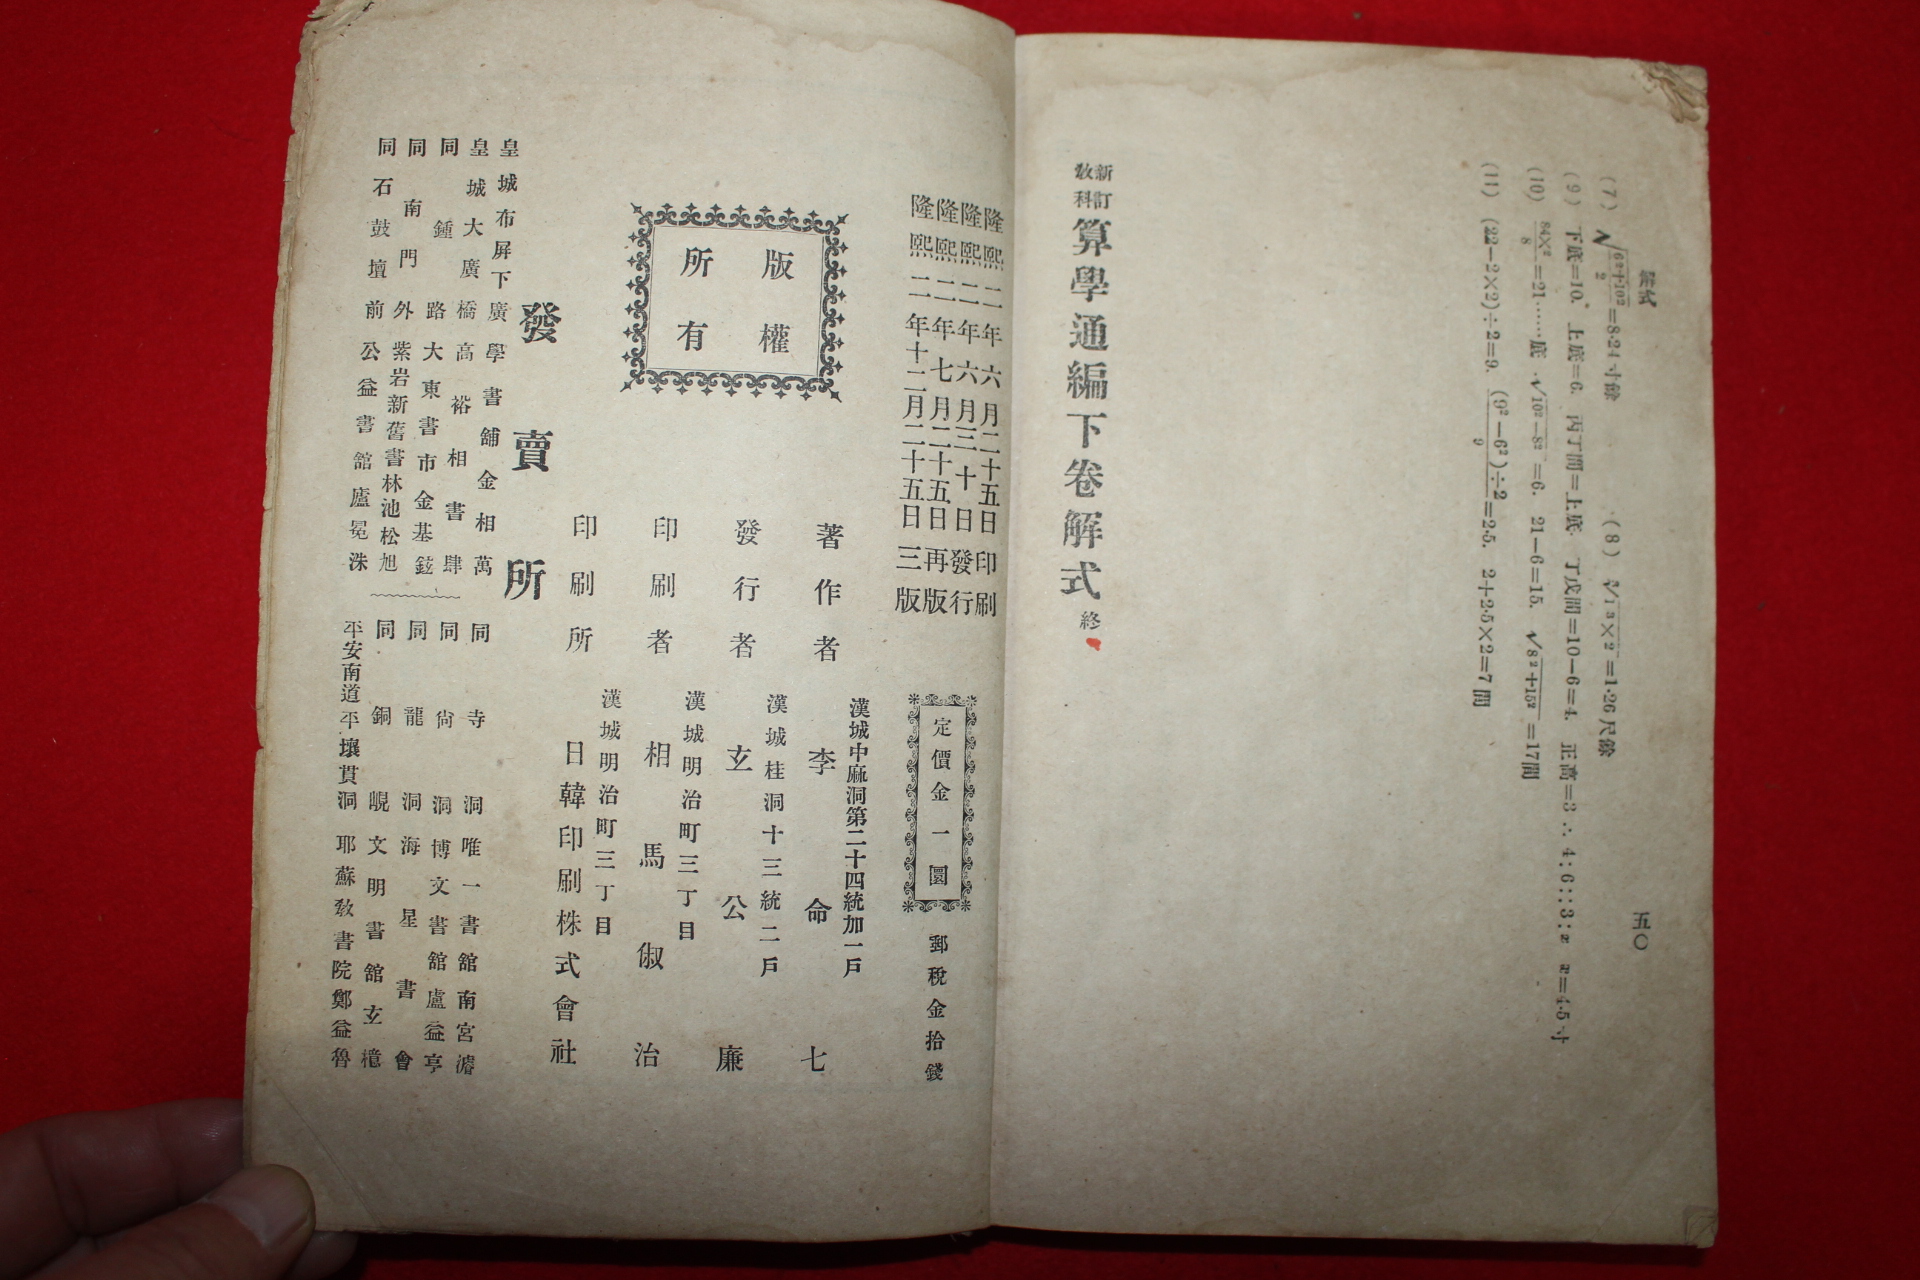 解式
五〇
(7) √6²+10²/2=8·24寸餘
(8) ∛1³×2=1·26尺餘
(9) 下底=10. 上底=6. 丙丁間=上底. 丁戊間=10−6=4. 正高=3 ∴ 4:6::3:x x=4·5寸
(10) 84×2/8=21……底 √10²−8²=6. 21−6=15. √8²+15²=17間
(11) (22−2×2)÷2=9. (9²−6²)÷2/9=2·5. 2+2·5×2=7間
新訂
敎科
算學通編下卷解式終
隆熙二年六月二十五日印刷
隆熙二年六月三十日發行
隆熙二年七月二十五日再版
隆熙二年十二月二十五日三版
定價金一圜
郵稅金拾錢
版權
所有
漢城中麻洞第二十四統加一戶
著作者 李命七
漢城桂洞十三統二戶
發行者 玄公廉
漢城明治町三丁目
印刷者 相馬俶治
漢城明治町三丁目
印刷所 日韓印刷株式會社
發賣所
皇城布屛下廣學書舖金相萬
皇城大廣橋高裕相書肆
同鍾路大東書市金基鉉
同南門外紫岩新舊書林池松旭
同石鼓壇前公益書舘盧冕洙
同寺洞唯一書舘南宮濬
同尙洞博文書舘盧益亨
同龍洞海星書會
同銅峴文明書舘玄檍
平安南道平壤貫洞耶蘇敎書院鄭益魯